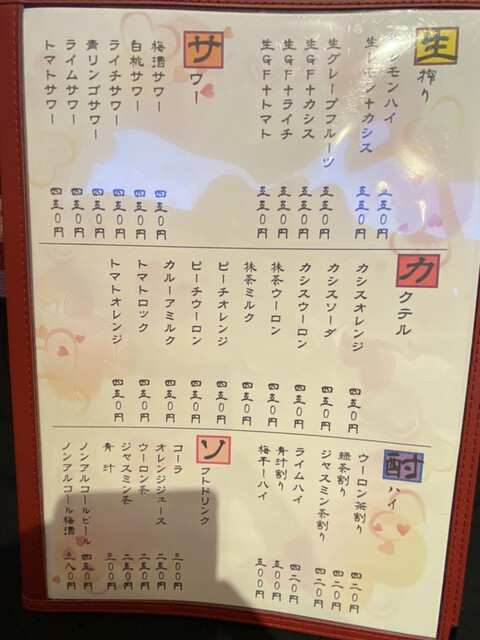 生搾り
レモンハイ 五五〇円
生レモン+カシス 五五〇円
生グレープフルーツ 五五〇円
生GF+カシス 五五〇円
生GF+ライチ 五五〇円
生GF+トマト 五五〇円
サワー
梅酒サワー 四五〇円
白桃サワー 四五〇円
ライチサワー 四五〇円
青リンゴサワー 四五〇円
ライムサワー 四五〇円
トマトサワー 四五〇円
カクテル
カシスオレンジ 四五〇円
カシスソーダ 四五〇円
カシスウーロン 四五〇円
抹茶ウーロン 四五〇円
抹茶ミルク 四五〇円
ピーチオレンジ 四五〇円
ピーチウーロン 四五〇円
カルーアミルク 四五〇円
トマトロック 四五〇円
トマトオレンジ 四五〇円
酎ハイ
ウーロン茶割り 四二〇円
緑茶割り 四二〇円
ジャスミン茶割り 四二〇円
ライムハイ 四二〇円
青汁割り 五〇〇円
梅干ーハイ 五〇〇円
ソフトドリンク
コーラ 〇〇円
オレンジジュース 二五〇円
ウーロン茶 二五〇円
ジャスミン茶 二五〇円
青汁 三〇〇円
ノンアルコールビール 四五〇円
ノンアルコール梅酒 三八〇円